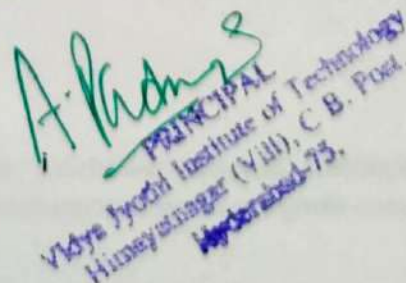 PRINCIPAL
Vidya Jyothi Institute of Technology
Himayatnagar (Vill), C B. Post.
Hyderabad-75.